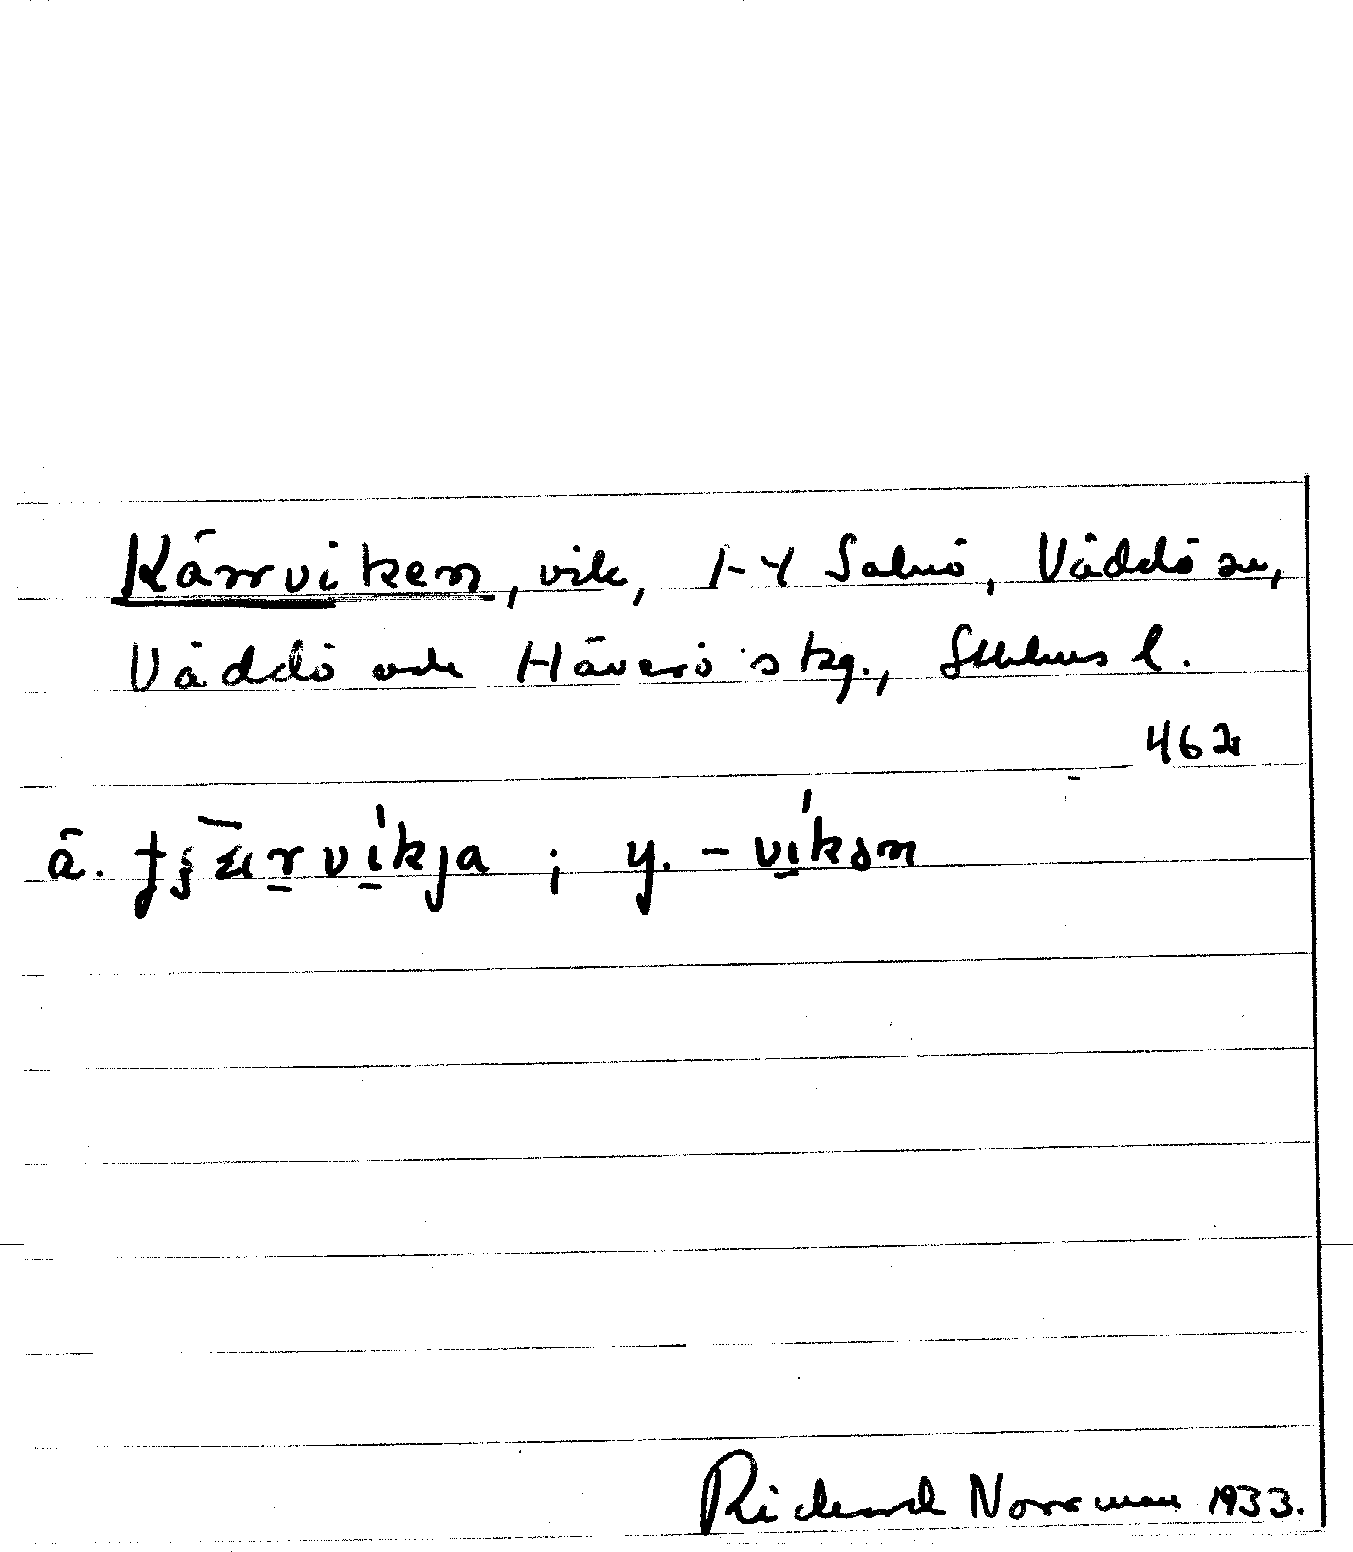 Kärrviken, vik, 1-4 Salnö, Väddö sn,
Väddö och Häverö skg., Sthlms l.
462
ä. vı́kja; y. -vı́kən
Richard Norrman 1933.